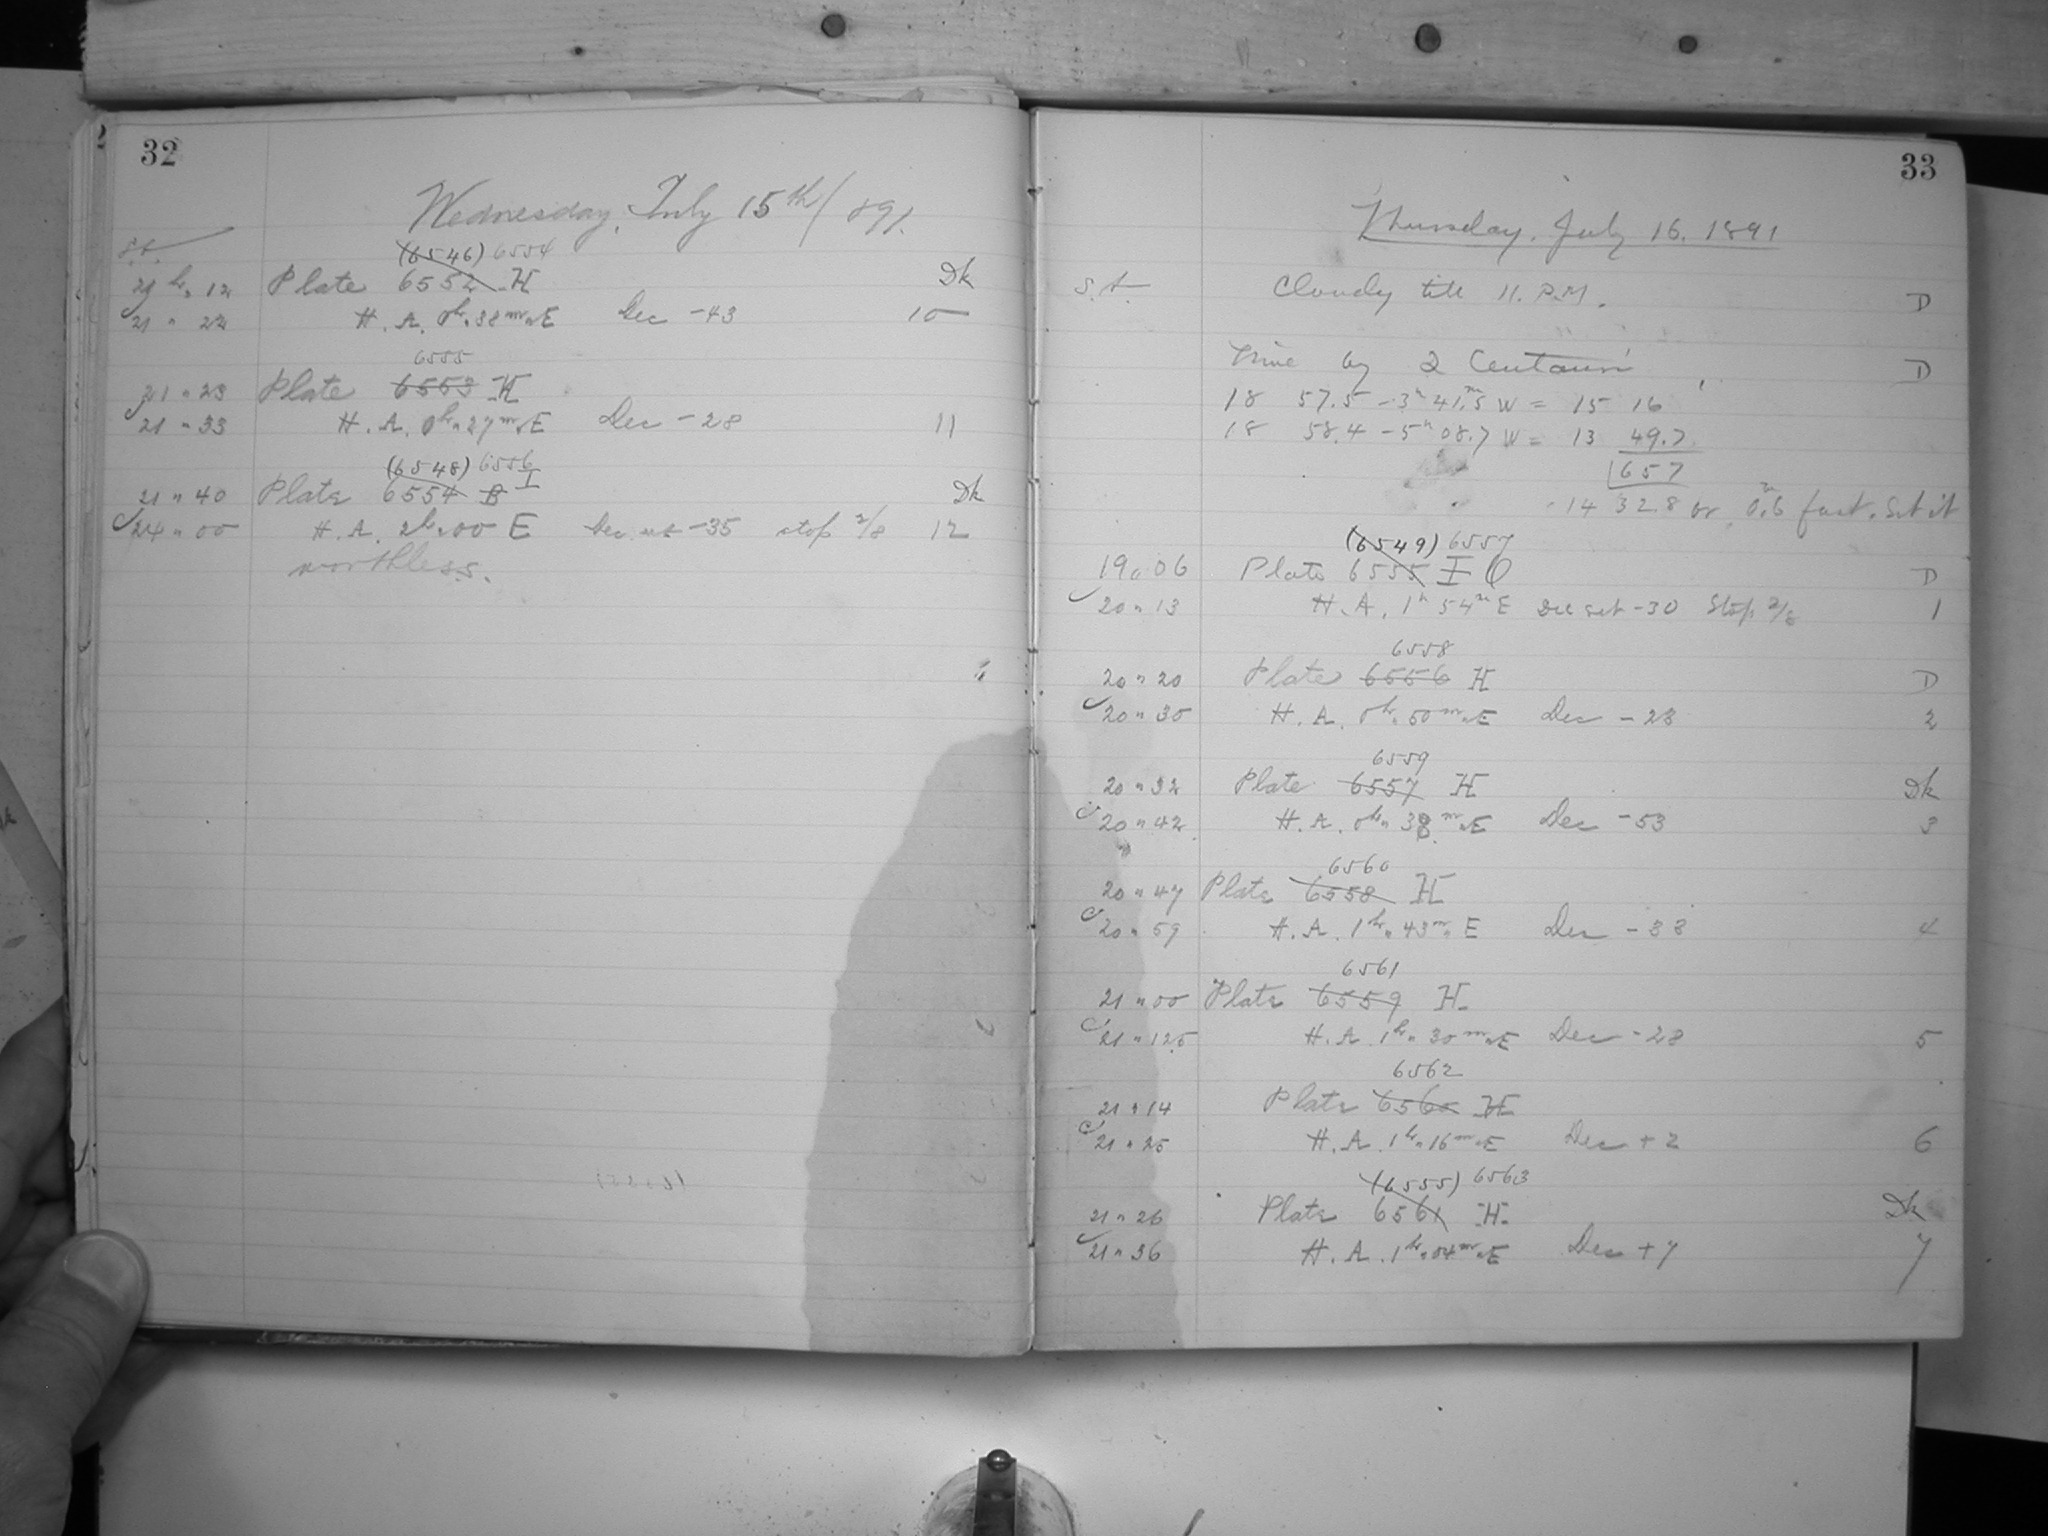 32
Wednesday, July 15th/891.
S.T.
(6546) 6554
21 hr. 12 Plate 6552 H Dk
21 " 22 H. A. 0hr. 38m. E Dec -43 10
6555
21 " 23 Plate 6553 H
21 " 33 H. A. 0hr. 27m. E Dec -28 11
(6548) 6556
21 " 40 Plate 6554 B I Dk
24 " 00 H. A. 2hr. 00 E Dec set -35 stop 2/8 12
worthless.
33
Thursday, July 16. 1891
S.T. Cloudy till 11. P.M. D
Time by 2 Centauri D
18 57.5 - 3h 41.5m W = 15 16
18 58.4 - 5h 08.7 W = 13 49.7
657
14 32.8 or 0.6m fast. Set it
(6549) 6557
19 " 06 Plate 6555 I Q D
20 " 13 H. A. 1h 54m E Dec set -30 Stop 2/8 1
6558
20 " 20 Plate 6556 H D
20 " 30 H. A. 0hr. 50m. E Dec -23 2
6559
20 " 32 Plate 6557 H Dk
20 " 42 H. A. 0hr. 38m. E Dec -53 3
6560
20 " 47 Plate 6558 H
20 " 59 H. A. 1hr. 43m. E Dec -33 4
6561
21 " 00 Plate 6559 H
21 " 12.5 H. A. 1hr. 30m. E Dec -28 5
6562
21 " 14 Plate 6560 H
21 " 25 H. A. 1hr. 16m. E Dec +2 6
(6555) 6563
21 " 26 Plate 6561 H Dk
21 " 36 H. A. 1hr. 04m. E Dec +7 7